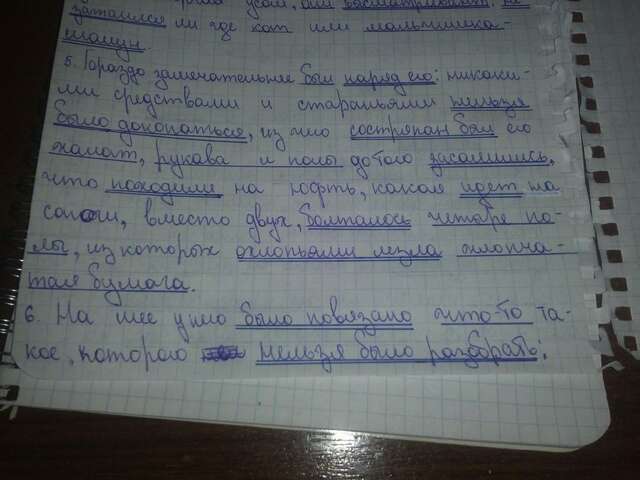 усом, или высматривает, не
затаился ли где кот или мальчишка-
шалун.
5. Гораздо замечательнее был наряд его: никаки-
ми средствами и стараньями нельзя
было докопаться, из чго состряпан был его
халат, рукава и полы до того засалились,
что походили на юфть, какая идет на
сапоги, вместо двух, болталось четыре по-
лы, из которых охлопьями лезла хлопча-
тая бумага.
6. На шее у него было повязано что-то та-
кое, которого нельзя было разобрать: